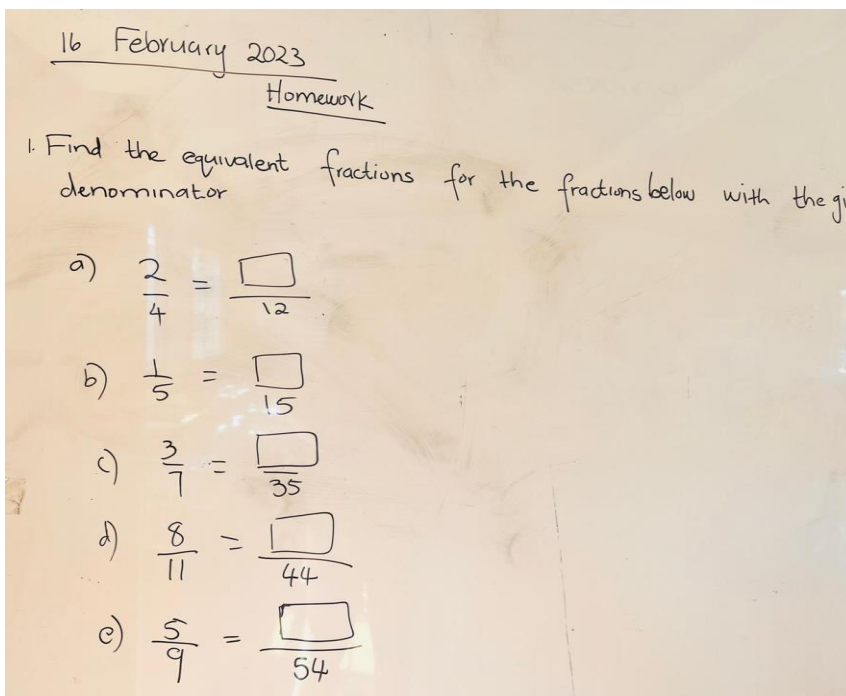 16 February 2023
Homework
1. Find the equivalent fractions for the fractions below with the
denominator
a) 2/4 = □/12
b) 1/5 = □/15
c) 3/7 = □/35
d) 8/11 = □/44
e) 5/9 = □/54